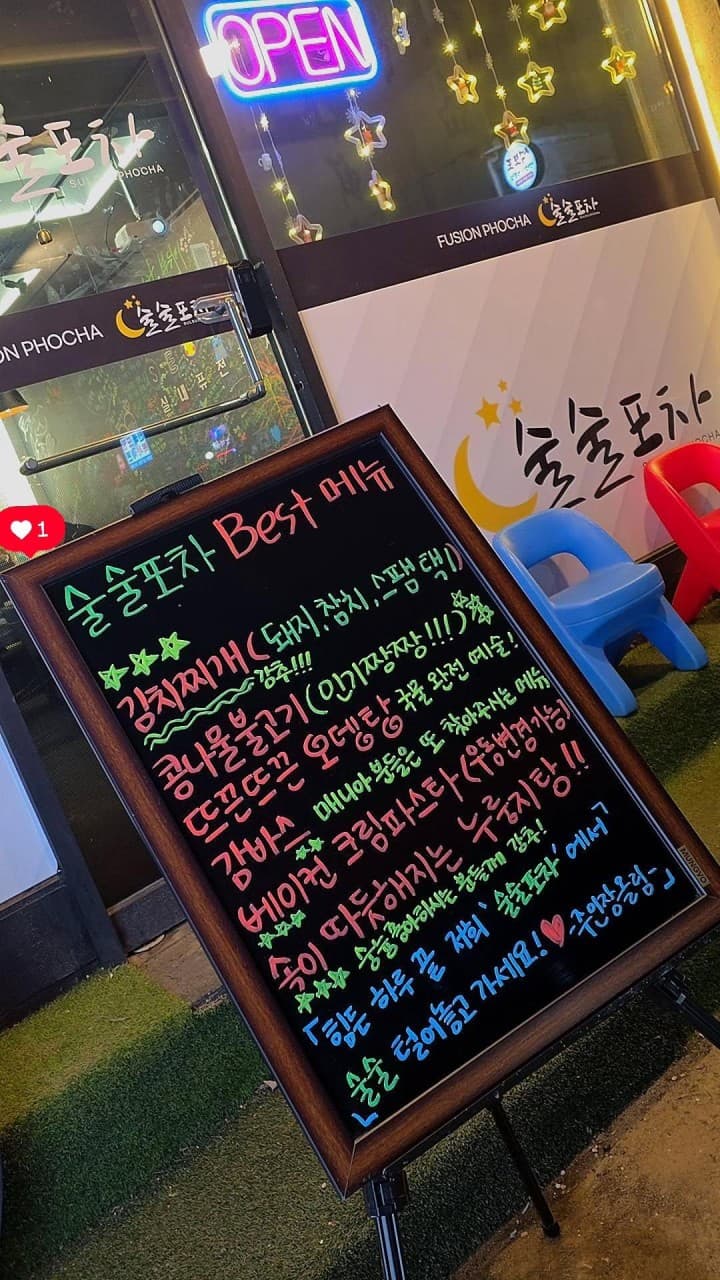 OPEN
술술포차
SULSULPHOCHA
FUSION PHOCHA 술술포차
ON PHOCHA 술술포차
실내퓨전
술술포차
1
술술포차 Best 메뉴
김치찌개 (돼지, 참치, 스팸 택1)
강추!!!
콩나물불고기 (인기짱짱!!!)
뜨끈뜨끈 오뎅탕 국물 완전 예술!
감바스 매니아 분들은 또 찾아주시는 메뉴
베이컨 크림파스타 (우동변경가능)
속이 따듯해지는 누룽지탕!!
술술 좋아하시는 분들께 강추!
「힘든 하루 끝 저희 '술술포차'에서
술술 털어놓고 가세요! ♥ -주인장올림-」
MUKOYO